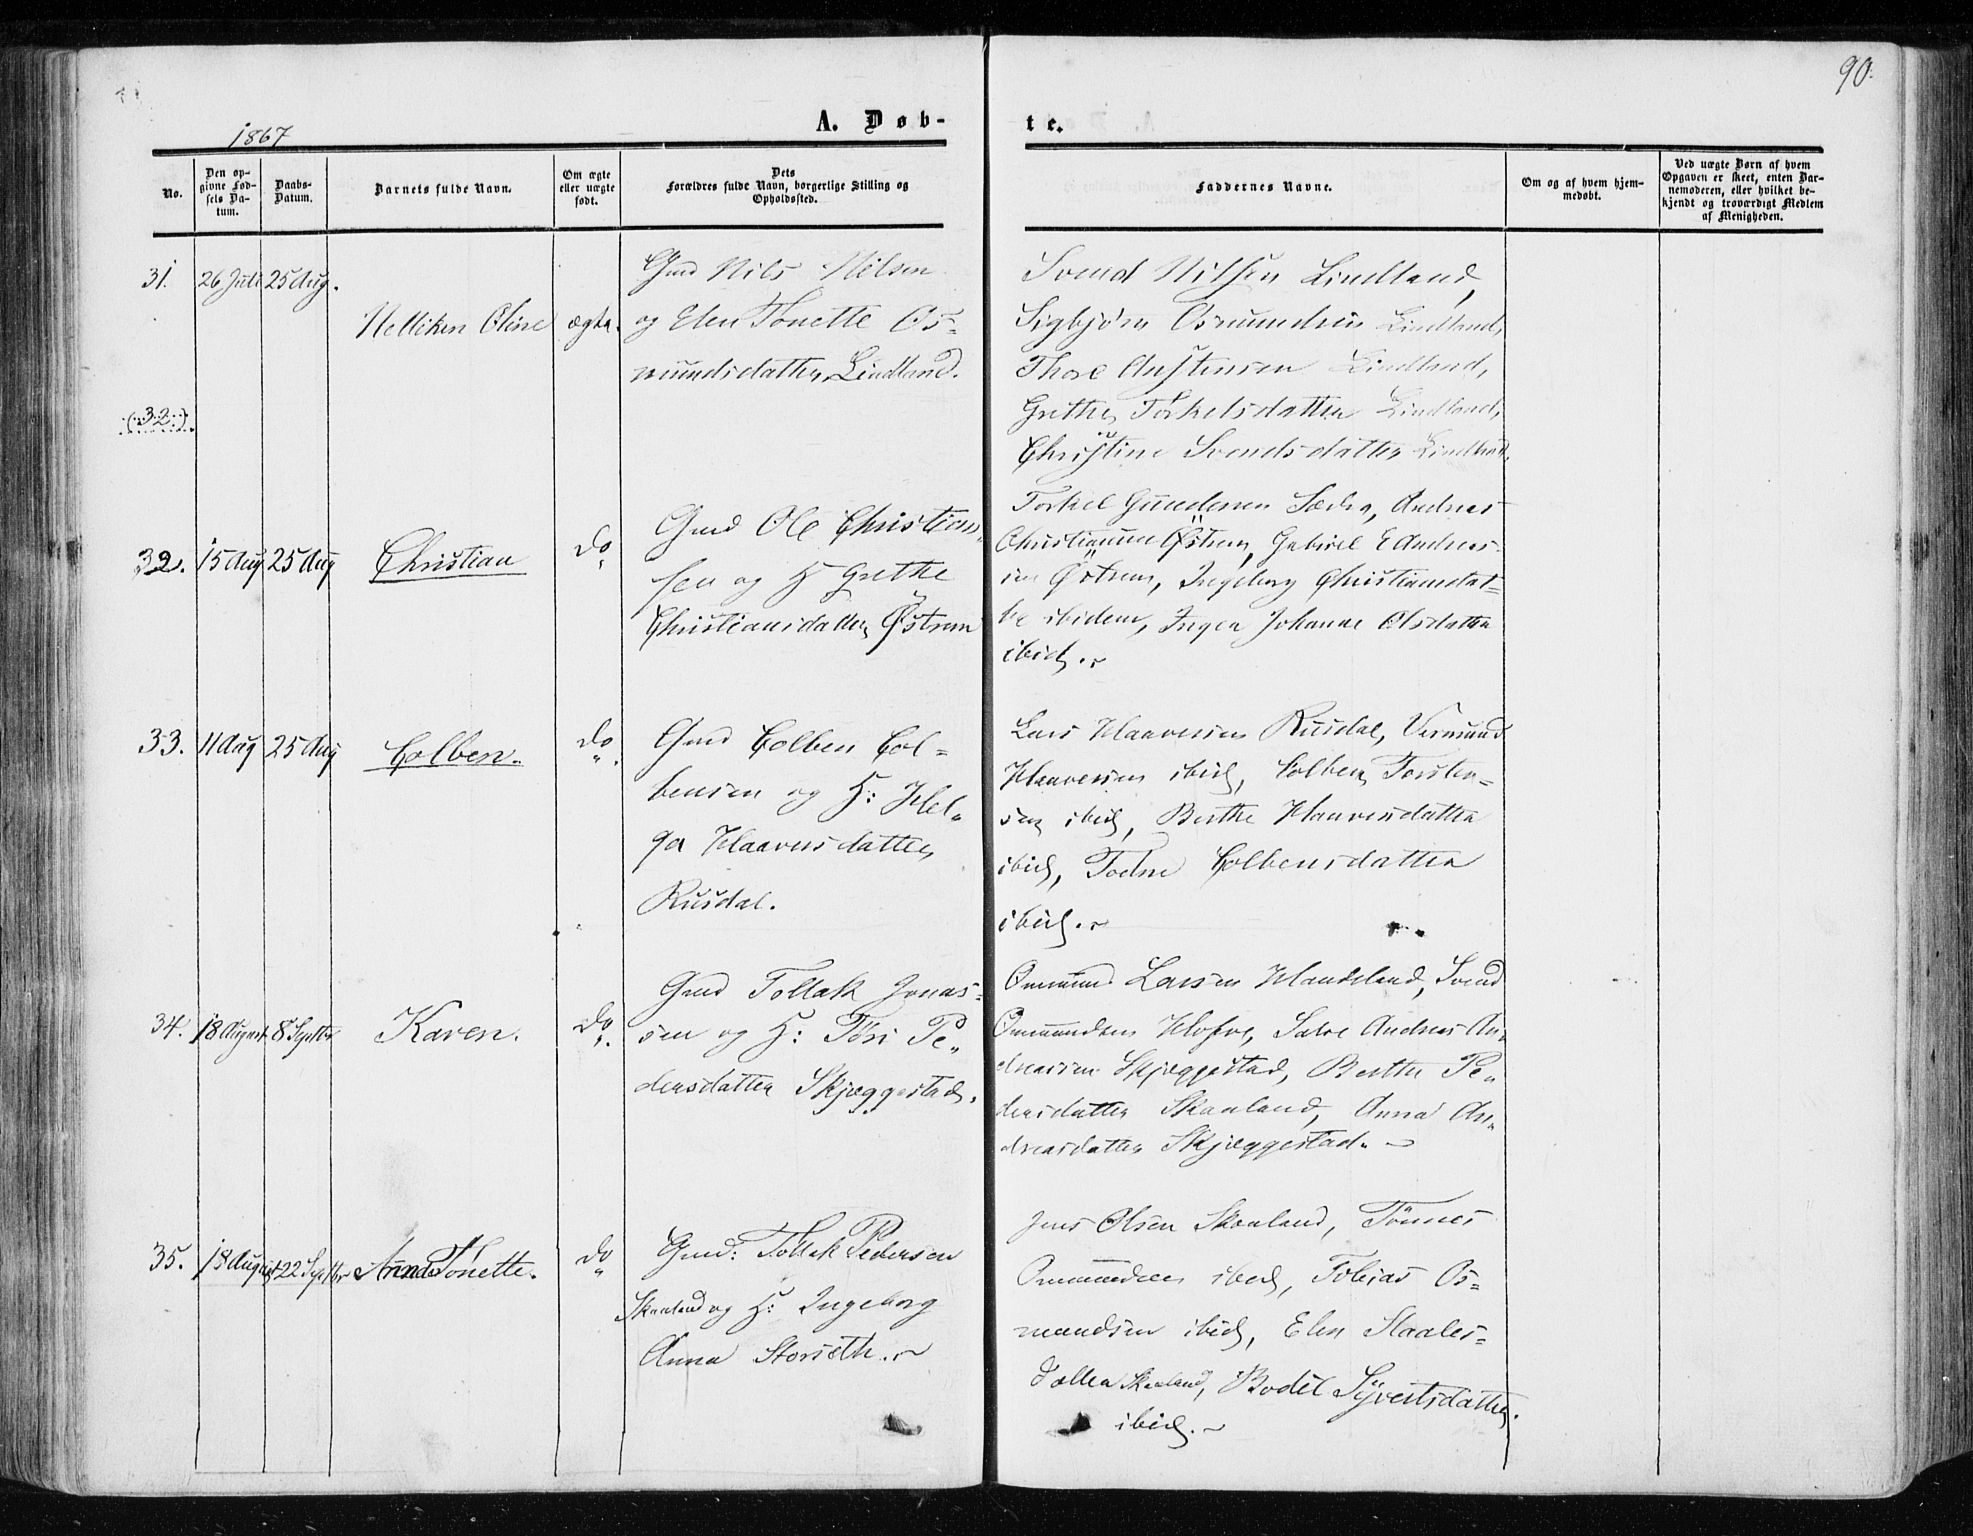 90.
1867
A. Døb-
te.
No.
Den op-
givne Fød-
sels Da-
tum.
Daabs-
Datum.
Barnets fulde Navn.
Om ægte
eller uægte
født.
Dets
Forældres fulde Navn, borgerlige Stilling og
Opholdssted.
Faddernes Navne.
Om og af hvem hjem-
medøbt.
Ved uægte Børn af hvem
Opgaven er skeet, enten Bar-
nemoderen, eller hvilket be-
kjendt og troværdigt Medlem
af Menigheden.
31. 26 Juli 25 Aug.
Nelliken Oline ægte.
Gmd Nils Nilsen
og Elen Tonette Os-
mundsdatter Lindland.
Svend Nilsen Lindland,
Sigbjørn Osmundsen Lindland,
Thore Austensen Lindland,
Grethe Torkelsdatter Lindland,
Christine Svendsdatter Lindland.
(32.)
32. 15 Aug 25 Aug Christian do
Gmd Ole Christian-
sen og H Grethe
Christiansdatter Østrem
Torkel Gundersen Sædra, Andreas
Christiansen Østrem, Gabriel E Andreas-
sen Østrem, Ingeborg Christiansdat-
ter ibidem, Inger Johanne Olsdatter
ibid.
33. 11 Aug 25 Aug Colben. do
Gmd Colben Col-
bensen og H: Hel-
ga Haaversdatter
Rusdal.
Lars Haaversen Rusdal, Vermund
Haaversen ibid, Colben Torsten-
sen ibid, Berthe Haaversdatter
ibid, Todne Colbensdatter
ibid.
34. 18 August 8 Septbr Karen. do
Gmd Tollak Jonas-
sen og H: Tøri Pe-
dersdatter Skjæggestad.
Ommund Larsen Haadeland, Svend
Ommundsen Hofve, Salve Andreas An-
dreassen Skjæggestad, Berthe Pe-
dersdatter Skaaland, Anna An-
dreasdatter Skjæggestad.
35. 18 August 22 Septbr Anna Tonette. do
Gmd: Tollak Pedersen
Skaaland og H: Ingeborg
Anna Storseth.
Jens Olsen Skaaland, Tønnes
Ommundsen ibid, Tobias Os-
mundsen ibid, Elen Staales-
datter Skaaland, Bodil Syvertsdatter
ibid.